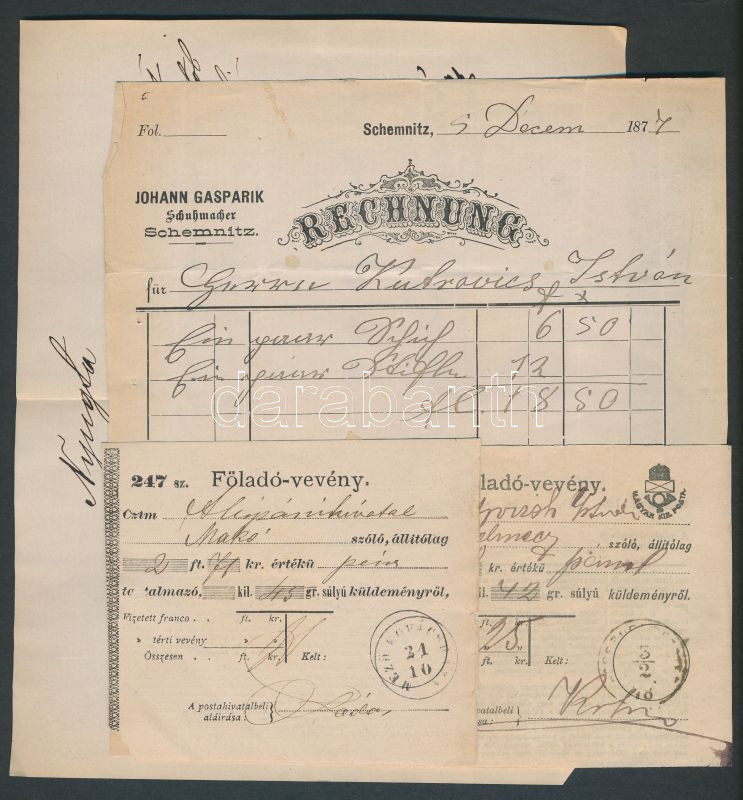 Fol.
Schemnitz, 5 Decem 1877
JOHANN GASPARIK
Schuhmacher
Schemnitz.
RECHNUNG
für Herrn Kutrovics István
Ein paar Schuh 6 50
Ein paar Stiefln 12
fl. 18 50
Nyugta
darabanth
247 sz. Föladó-vevény.
Czim Alispánihivatal
Makó szóló, állitólag
2 ft. 71 kr. értékü pénz
talmazó, kil. 45 gr. súlyú küldeményről,
Fizetett franco . . ft. kr.
» térti vevény »
Összesen . . ft. kr. Kelt:
A postahivatalbeli
aláirása:
MEZŐ KOVÁCSHÁZA
24
10
ladó-vevény.
MAGYAR KIR. POSTA.
szóló, állitólag
kr. értékü
il. 42 gr. súlyú küldeményről.
ft. kr.
25
ft. kr. Kelt:
vatalbeli